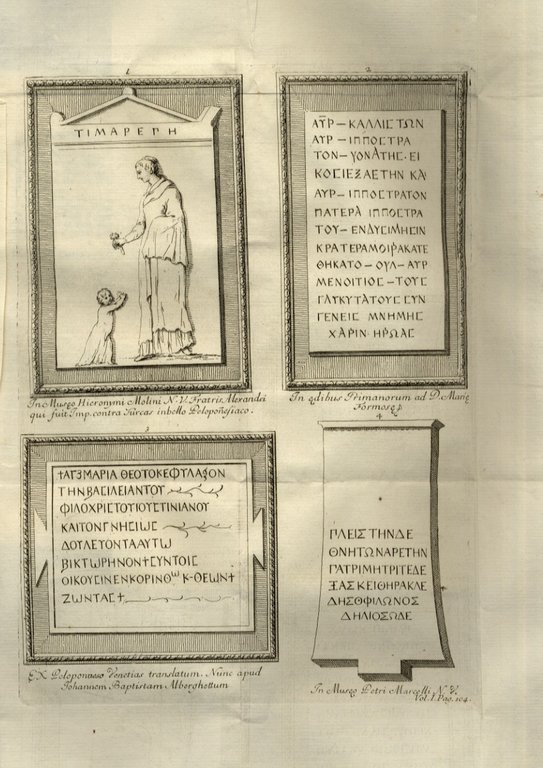 1
ΤΙΜΑΡΕΓΗ
In Museo Hieronymi Molini N. V. Fratris Alexandri
qui fuit Imp. contra Turcas in bello Peloponesiaco.
2
ΑΥΡ – ΚΑΛΛΙΣΤΩΝ
ΑΥΡ – ΙΠΠΟΣΤΡΑ
ΤΟΝ – ΥΟΝΑΤΗΣ · ΕΙ
ΚΟCΙΕΞΑΕΤΗΝ ΚΑ
ΑΥΡ – ΙΠΠΟΣΤΡΑΤΟΝ
ΠΑΤΕΡΑ ΙΠΠΟΣΤΡΑ
ΤΟΥ – ΕΝΔΥCΙΜΗCΙΝ
ΚΡΑΤΕΡΑΜΟΙΡΑΚΑΤΕ
ΘΗΚΑΤΟ – ΟΥΛ – ΑΥΡ
ΜΕΝΟΙΤΙΟC – ΤΟΥC
ΓΛΥΚΥΤΑΤΟΥC CΥΝ
ΓΕΝΕΙC ΜΝΗΜΗC
ΧΑΡΙΝ · ΗΡΩΑC
In ędibus Primanorum ad D. Marię
Formosę
3
†ΑΓΙΜΑΡΙΑ ΘΕΟΤΟΚΕΦΥΛΑΞΟΝ
ΤΗΝΒΑCΙΛΕΙΑΝΤΟΥ
ΦΙΛΟΧΡΙCΤΟΥΙΟΥCΤΙΝΙΑΝΟΥ
ΚΑΙΤΟΝΓΝΗCΙΩC
ΔΟΥΛΕΥΟΝΤΑΑΥΤΩ
ΒΙΚΤΩΡΗΝΟΝ†CΥΝΤΟΙC
ΟΙΚΟΥCΙΝΕΝΚΟΡΙΝΘω Κ·ΘΕΩΝ†
ΖΩΝΤΑC†
EX Peloponaeso Venetias translatum. Nunc apud
Iohannem Baptistam Alberghettum
4
ΠΛΕΙΣΤΗΝΔΕ
ΘΝΗΤΩΝΑΡΕΤΗΝ
ΠΑΤΡΙΜΗΤΡΙΤΕΔΕ
ΞΑΣΚΕΙΘΗΡΑΚΛΕ
ΔΗΣΘΦΙΛΩΝΟΣ
ΔΗΛΙΟΣΩΔΕ
In Museo Petri Marcelli N. V.
Vol. I. Pag. 104.